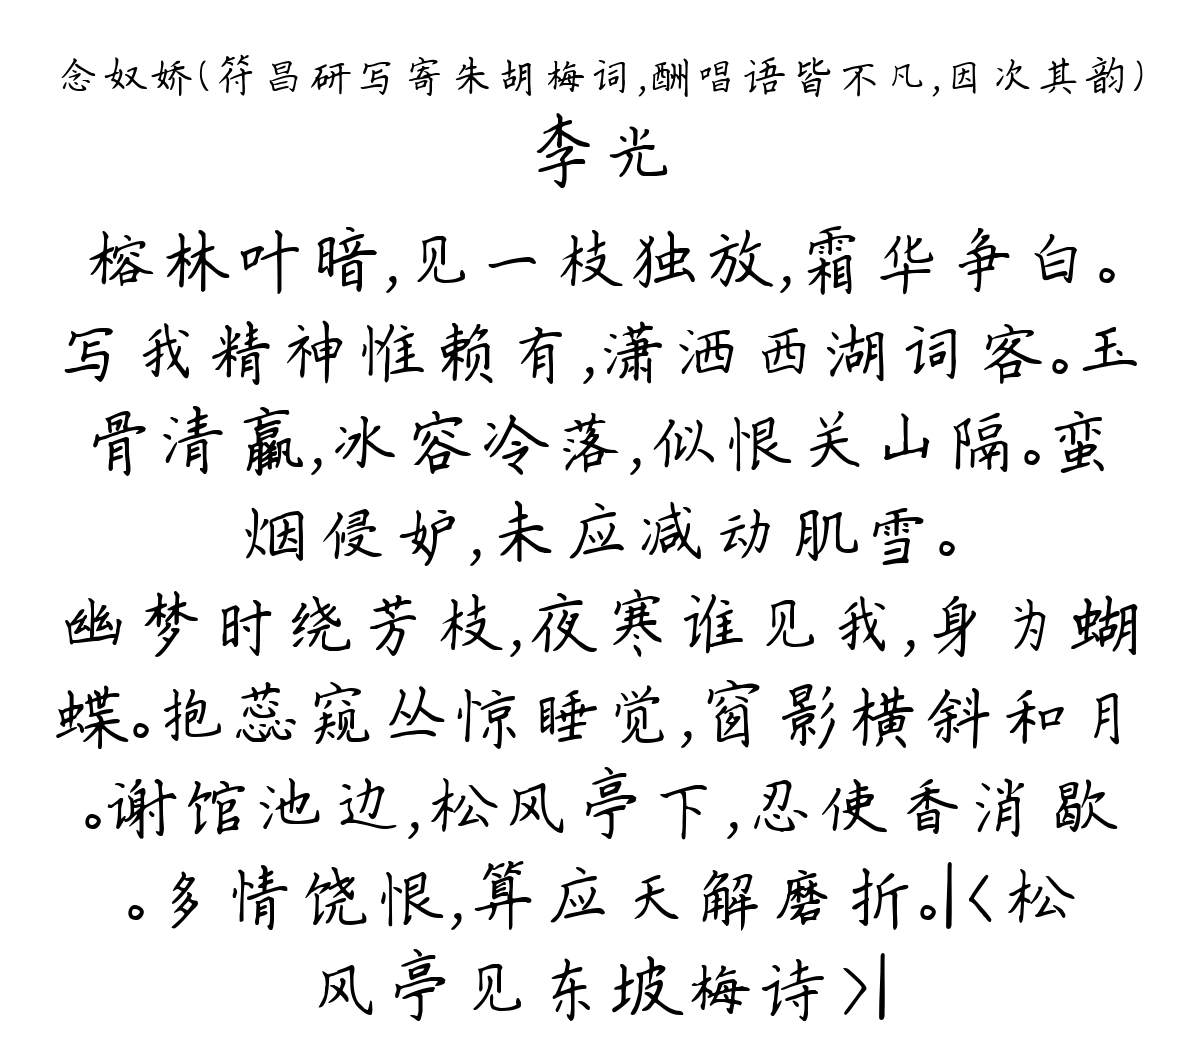 念奴娇(符昌研写寄朱胡梅词,酬唱语皆不凡,因次其韵)
李光
榕林叶暗,见一枝独放,霜华争白。
写我精神惟赖有,潇洒西湖词客。玉
骨清羸,冰容冷落,似恨关山隔。蛮
烟侵妒,未应减动肌雪。
幽梦时绕芳枝,夜寒谁见我,身为蝴
蝶。抱蕊窥丛惊睡觉,窗影横斜和月
。谢馆池边,松风亭下,忍使香消歇
。多情饶恨,算应天解磨折。|〈松
风亭见东坡梅诗〉|